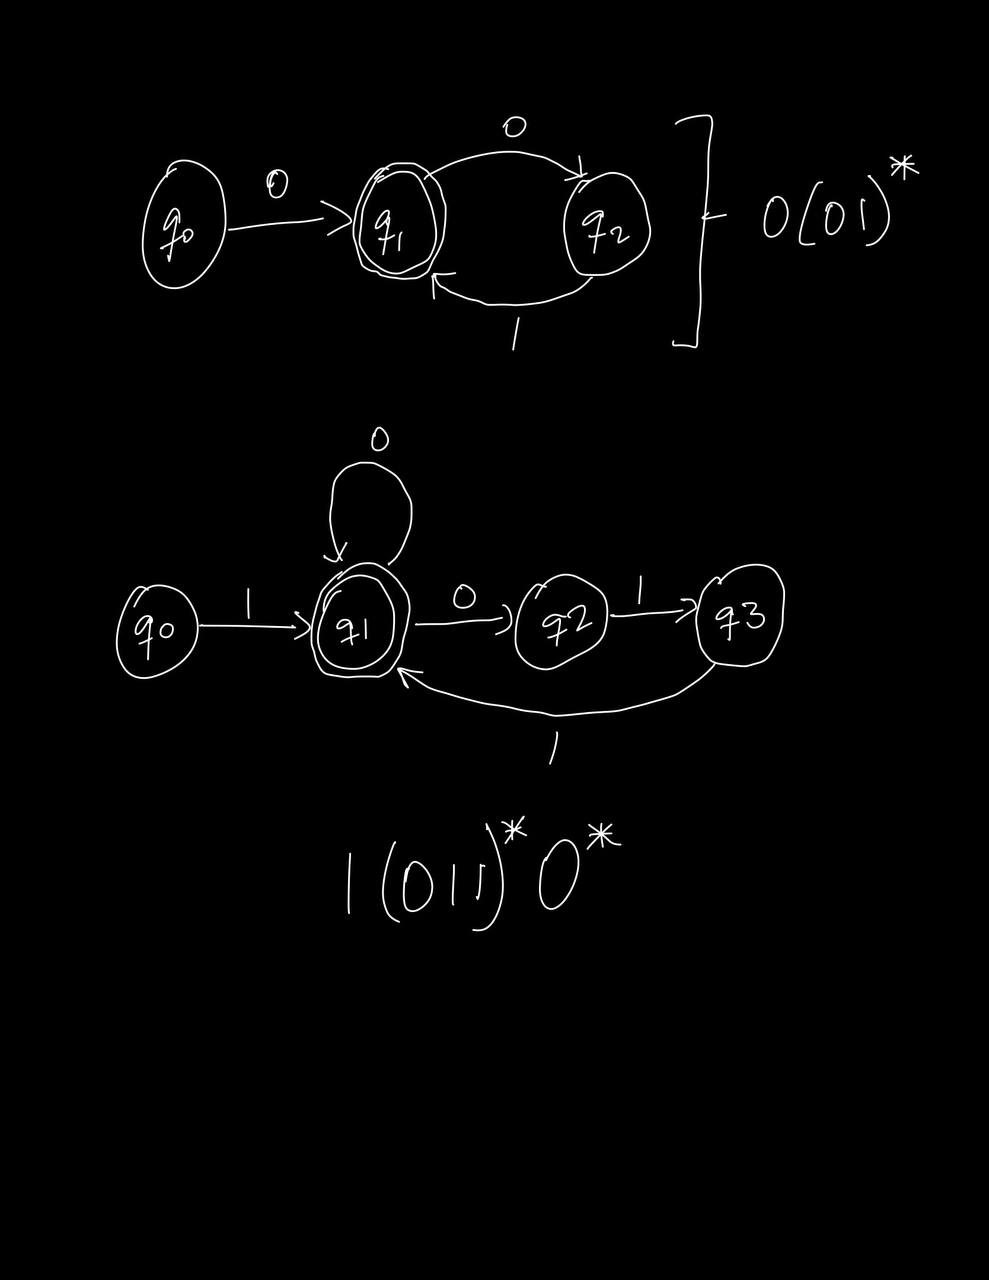 0
0
q0
q1
q2
0(01)*
1
0
q0
1
q1
0
q2
1
q3
1
1(011)*0*